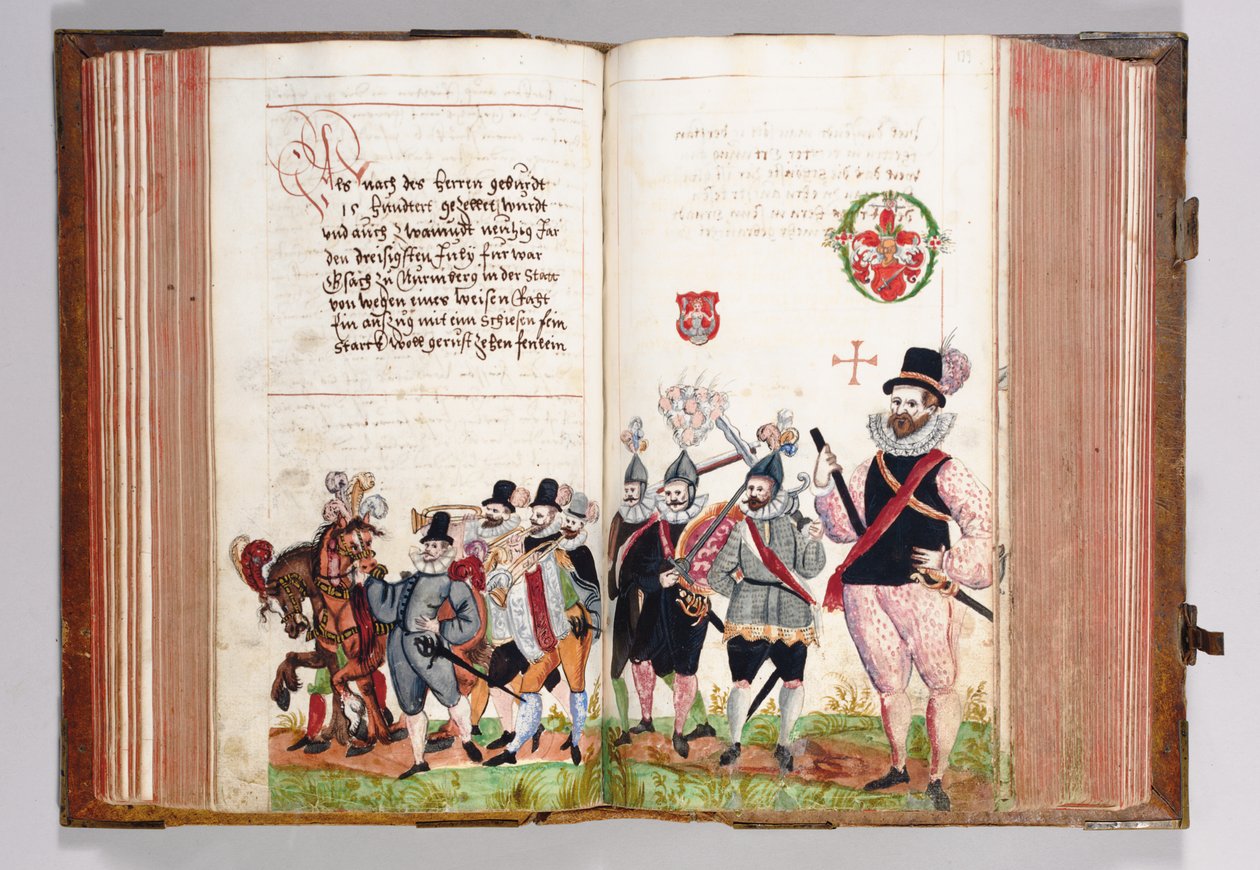 Als nach des Herren geburdt
15 hundtert gezellet wurdt
vnd auch zwaiundt neuhzig Jar
den dreisigsten July fur war
Gsach zu Nurmberg in der Statt
von wegen eines Weisen Raht
Ein auszug mit eim Schiesen fein
Starck woll gerust zehen fenlein
179